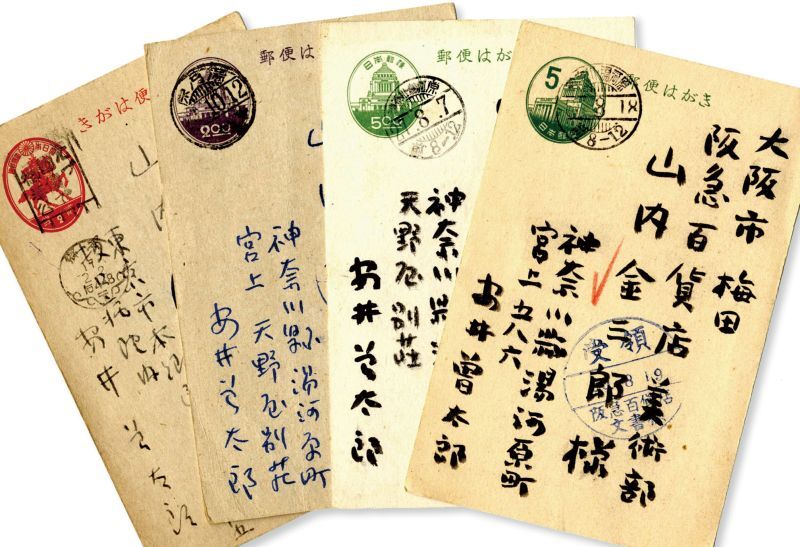 郵便はがき
5
日本郵便
湯河原
8 18
8-12
大阪市 梅田
阪急百貨店 美術部
山内金三郎様
神奈川縣湯河原町
宮上五八六
安井曽太郎
受領
8.19
阪急百貨店
文書
郵便はがき
日本郵便
500
8.7
8-12
神奈川縣
天野屋別荘
安井曽太郎
郵便はがき
200
山
神奈川縣湯河原町
宮上 天野屋別荘
安井曽太郎
きがは便
山内
東京市
安井曽太郎